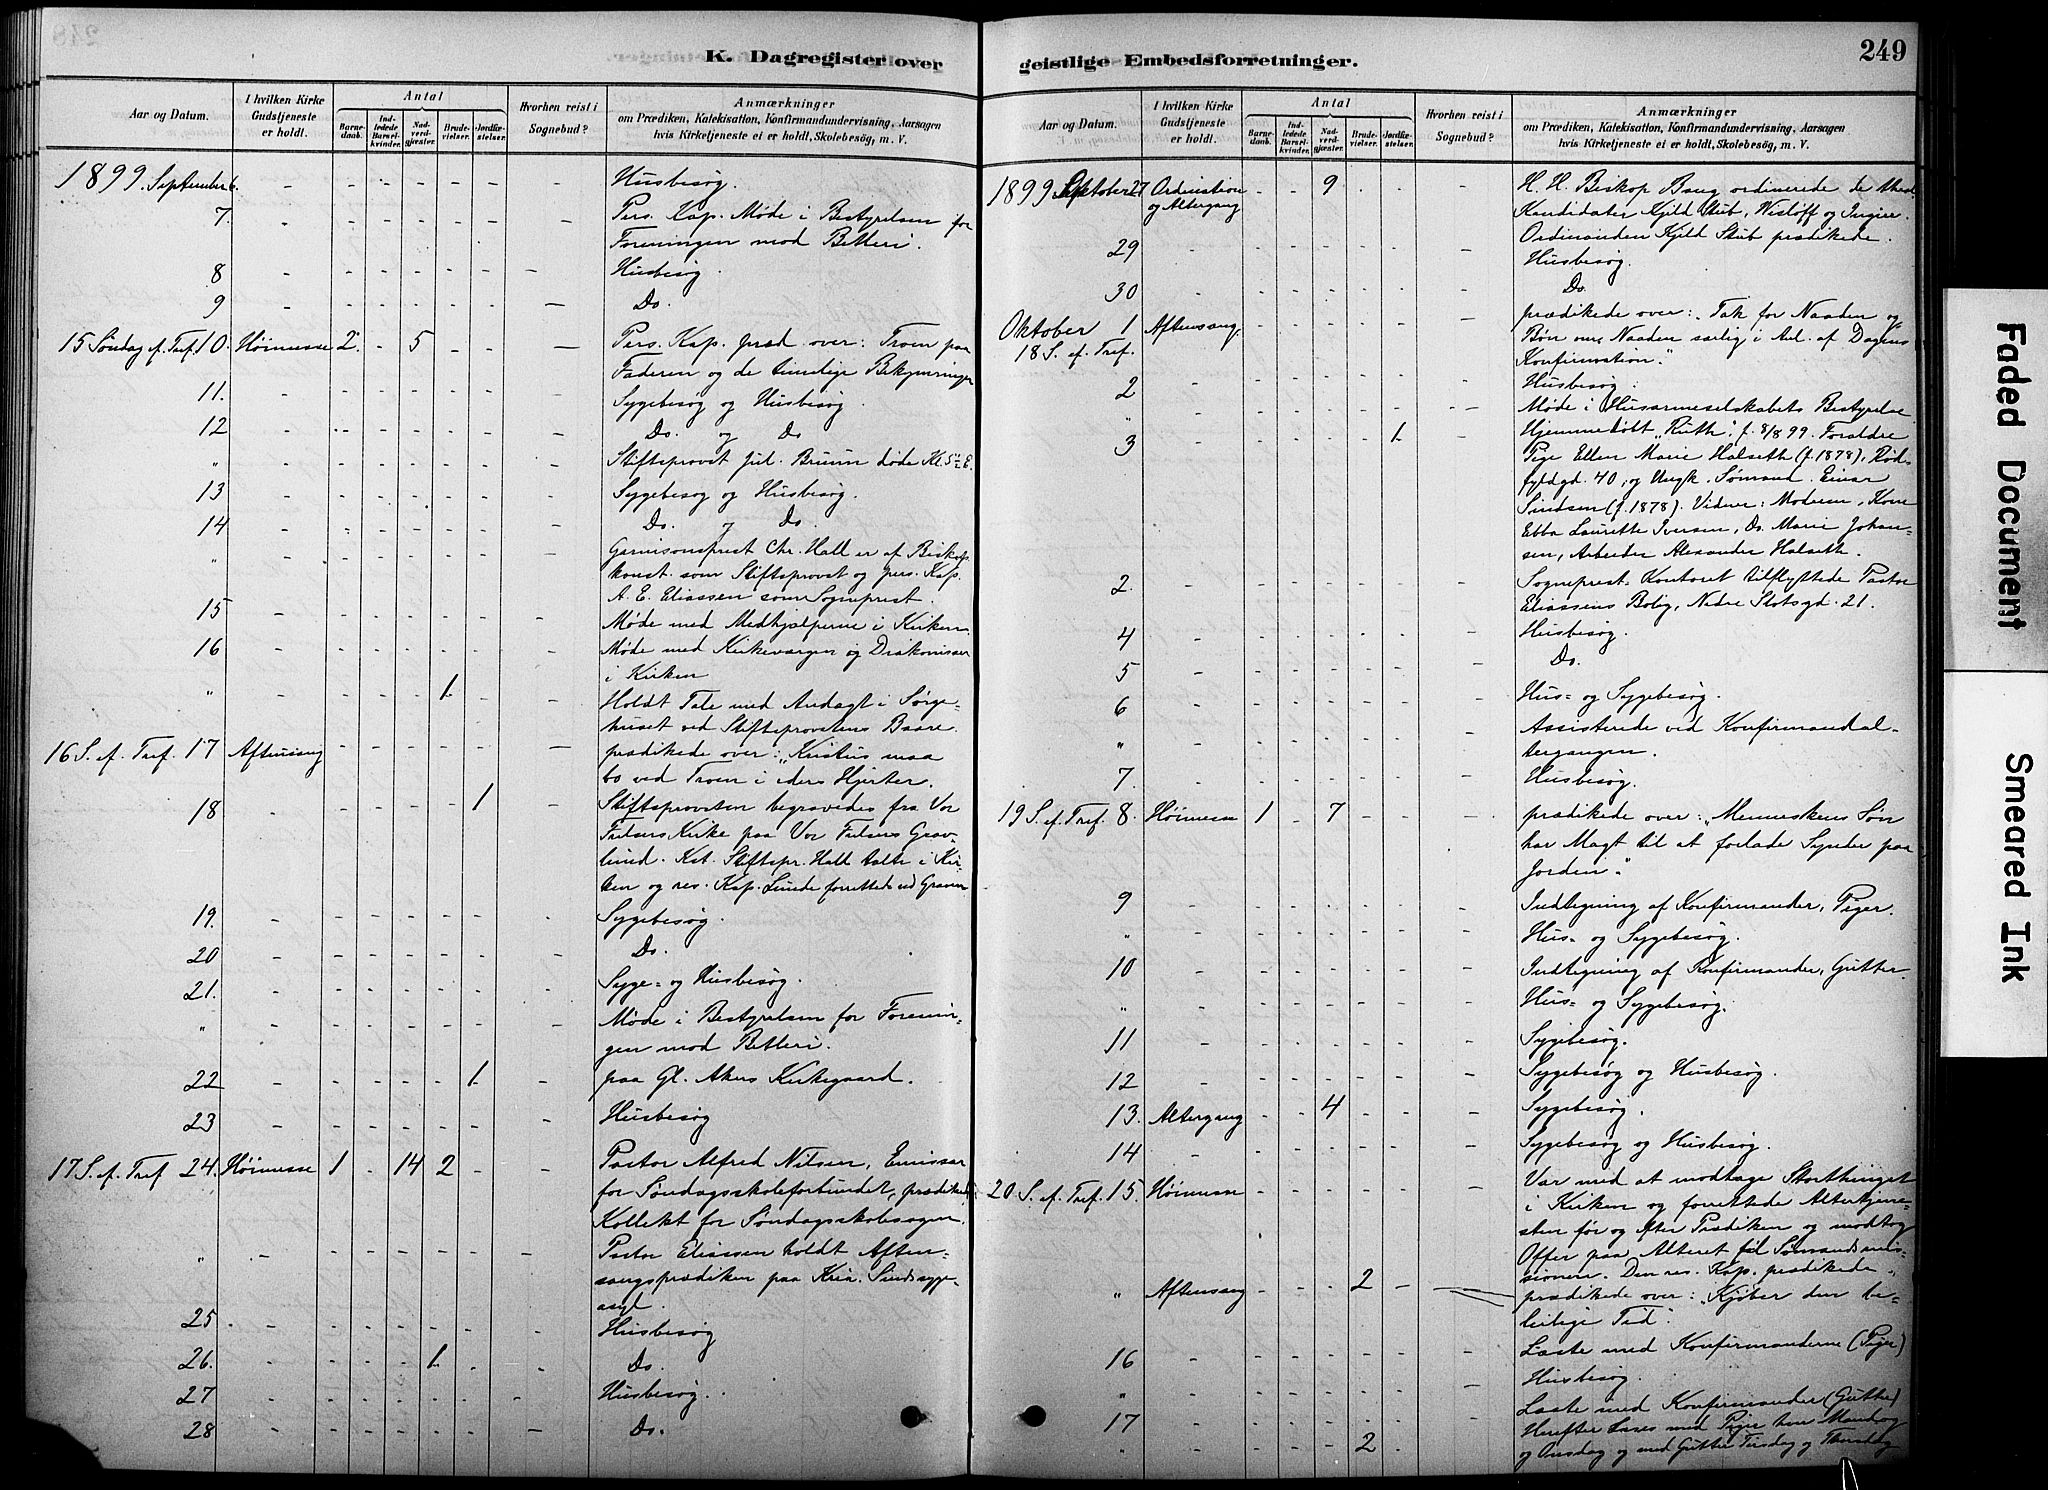 248
K. Dagregister over
geistlige Embedsforretninger.
249
Aar og Datum.
I hvilken Kirke Gudstjeneste er holdt.
Antal
Barne-daab.
Ind-ledede Barsel-kvinder.
Nad-verd-gjæster.
Brude-vielser.
Jordfæ-stelser.
Hvorhen reist i Sognebud?
Anmærkninger
om Prædiken, Katekisation, Konfirmandundervisning, Aarsagen
hvis Kirketjeneste ei er holdt, Skolebesøg, m. V.
1899 September 6. - - - - - - - Husbesøg.
7. - - - - - - - Pers. Kap. Møde i Bestyrelsen for
Foreningen mod Betleri.
8 - - - - - - - Husbesøg.
9 - - - - - - - Do.
15 Søndag ef. Tref. 10. Høimesse 2. - 5 - - - Pers. Kap. præd over: Troen paa
Faderen og de timelige Bekymringer
11. - - - - - - - Sygebesøg og Husbesøg.
12 - - - - - - - Do. og Do
" - - - - - - - Stiftsprovst Jul. Bruun døde Kl. 5½ E.
13 - - - - - - - Sygebesøg og Husbesøg.
14 - - - - - - - Do. Do.
" - - - - - - - Garnisonsprest Chr. Hall er af Biskop
konst. som Stiftsprovst og pers. Kap.
A. E. Eliassen som Sogneprest.
15 - - - - - - - Møde med Medhjælperne i Kirken.
16 - - - - - - - Møde med Kirkeværgen og Diakonisser
i Kirken
" - - - - 1 - - Holdt Tale med Andagt i Sørge-
huset ved Stiftsprovstens Baare.
16 S. ef. Tref. 17 Aftensang - - - - - - prædikede over: "Kristus maa
bo ved Troen i eders Hjerter.
18 - - - - - 1 - Stiftsprovsten begravedes fra Vor
Frelsers Kirke paa Vor Frelsers Grav-
lund. Kst. Stiftspr. Hall talte i Kir-
ken og res. Kap. Lunde forrettede ved Graven
19. - - - - - - - Sygebesøg.
20 - - - - - - Do.
21. - - - - - - - Syge- og Husbesøg.
" - - - - - - - Møde i Bestyrelsen for Forenin-
gen mod Betleri.
22 - - - - - 1 - paa Gl. Akers Kirkegaard.
23 - - - - - - - Husbesøg
17 S. ef. Tref 24. Høimesse 1 - 14 2 - - Pastor Alfred Nilsen, Emissær
for Søndagsskoleforbundet, prædikede
Kollekt for Søndagsskolesagen.
" - - - - - - - Pastor Eliassen holdt Aften-
sangsprædiken paa Kria. Sindssyge-
asyl.
25 - - - - - - - Husbesøg
26. - - - 1 - - - Do.
27 - - - - - - - Husbesøg.
28 - - - - - - - Do.
Aar og Datum.
I hvilken Kirke Gudstjeneste er holdt.
Antal
Barne-daab.
Ind-ledede Barsel-kvinder.
Nad-verd-gjæster.
Brude-vielser.
Jordfæ-stelser.
Hvorhen reist i Sognebud?
Anmærkninger
om Prædiken, Katekisation, Konfirmandundervisning, Aarsagen
hvis Kirketjeneste ei er holdt, Skolebesøg, m. V.
1899 27 Ordination - - 9 - - - H. H. Biskop Bang ordinerede de theol.
og Altergang Kandidater Kjeld Stub, Wisløff og Ingier.
Ordinanden Kjeld Stub prædikede.
29 - - - - - - - Husbesøg.
30 - - - - - - - Do.
Oktober 1 Aftensang. - - - - - - prædikede over: Tak for Naaden og
18 S. ef. Tref. Bøn om Naaden særlig i Anl. af Dagens
Konfirmation."
2 - - - - - - - Husbesøg.
" - - - - - - - Møde i Husarmeselskabets Bestyrelse
3 - - - - - 1 - Hjemmedøbt "Ruth", f. 8/8 99. Forældre
Pige Ellen Marie Halseth (f. 1878), Rød-
fyldgd. 40, og Ungk. Sømand Einar
(f. 1878). Vidner: Moderen, Kone
Ebba Laurette Iversen, Do. Marie Johan-
sen, Arbeider Alexander Halseth.
2. - - - - - - - Sogneprest-Kontoret tilflyttede Pastor
Eliassens Bolig, Nedre Slotsgd. 21.
4 - - - - - - - Husbesøg.
5 - - - - - - - Do.
6 - - - - - - - Hus- og Sygebesøg.
" - - - - - - - Assisterede ved Konfirmandal-
tergangen.
7. - - - - - - - Husbesøg.
19 S. ef. Tref. 8. Høimesse 1 - 7 - - - prædikede over: "Menneskens Søn
har Magt til at forlade Synder paa
Jorden".
9 - - - - - - - Indtegning af Konfirmander, Piger.
" - - - - - - - Hus- og Sygebesøg.
10 - - - - - - - Indtegning af Konfirmander, Gutter.
" - - - - - - - Hus- og Sygebesøg.
11 - - - - - - - Sygebesøg.
12 - - - - - - - Sygebesøg og Husbesøg.
13. Altergang - - 4 - - - Sygebesøg.
14 - - - - - - - Sygebesøg og Husbesøg.
20 S. ef. Tref. 15. Høimesse - - - - - - Var med at modtage Storthinget
i Kirken og forrettede Altertjene-
sten før og efter Prædiken og modtog
Offer paa Alteret til Sømandsmis-
sionen. Den res. Kap. prædikede.
" Aftensang - - - 2 - - prædikede over: "Kjøber den be-
leilige Tid".
16 - - - - - - - Læste med Konfirmanderne (Piger)
" - - - - - - - Husbesøg.
17 - - - - - - - Læste med Konfirmander (Gutter)
" - - - 2 - - Herefter læses med Piger hver Mandag
og Onsdag og med Gutter Tirsdag og Thorsdag
Faded Document
Smeared Ink